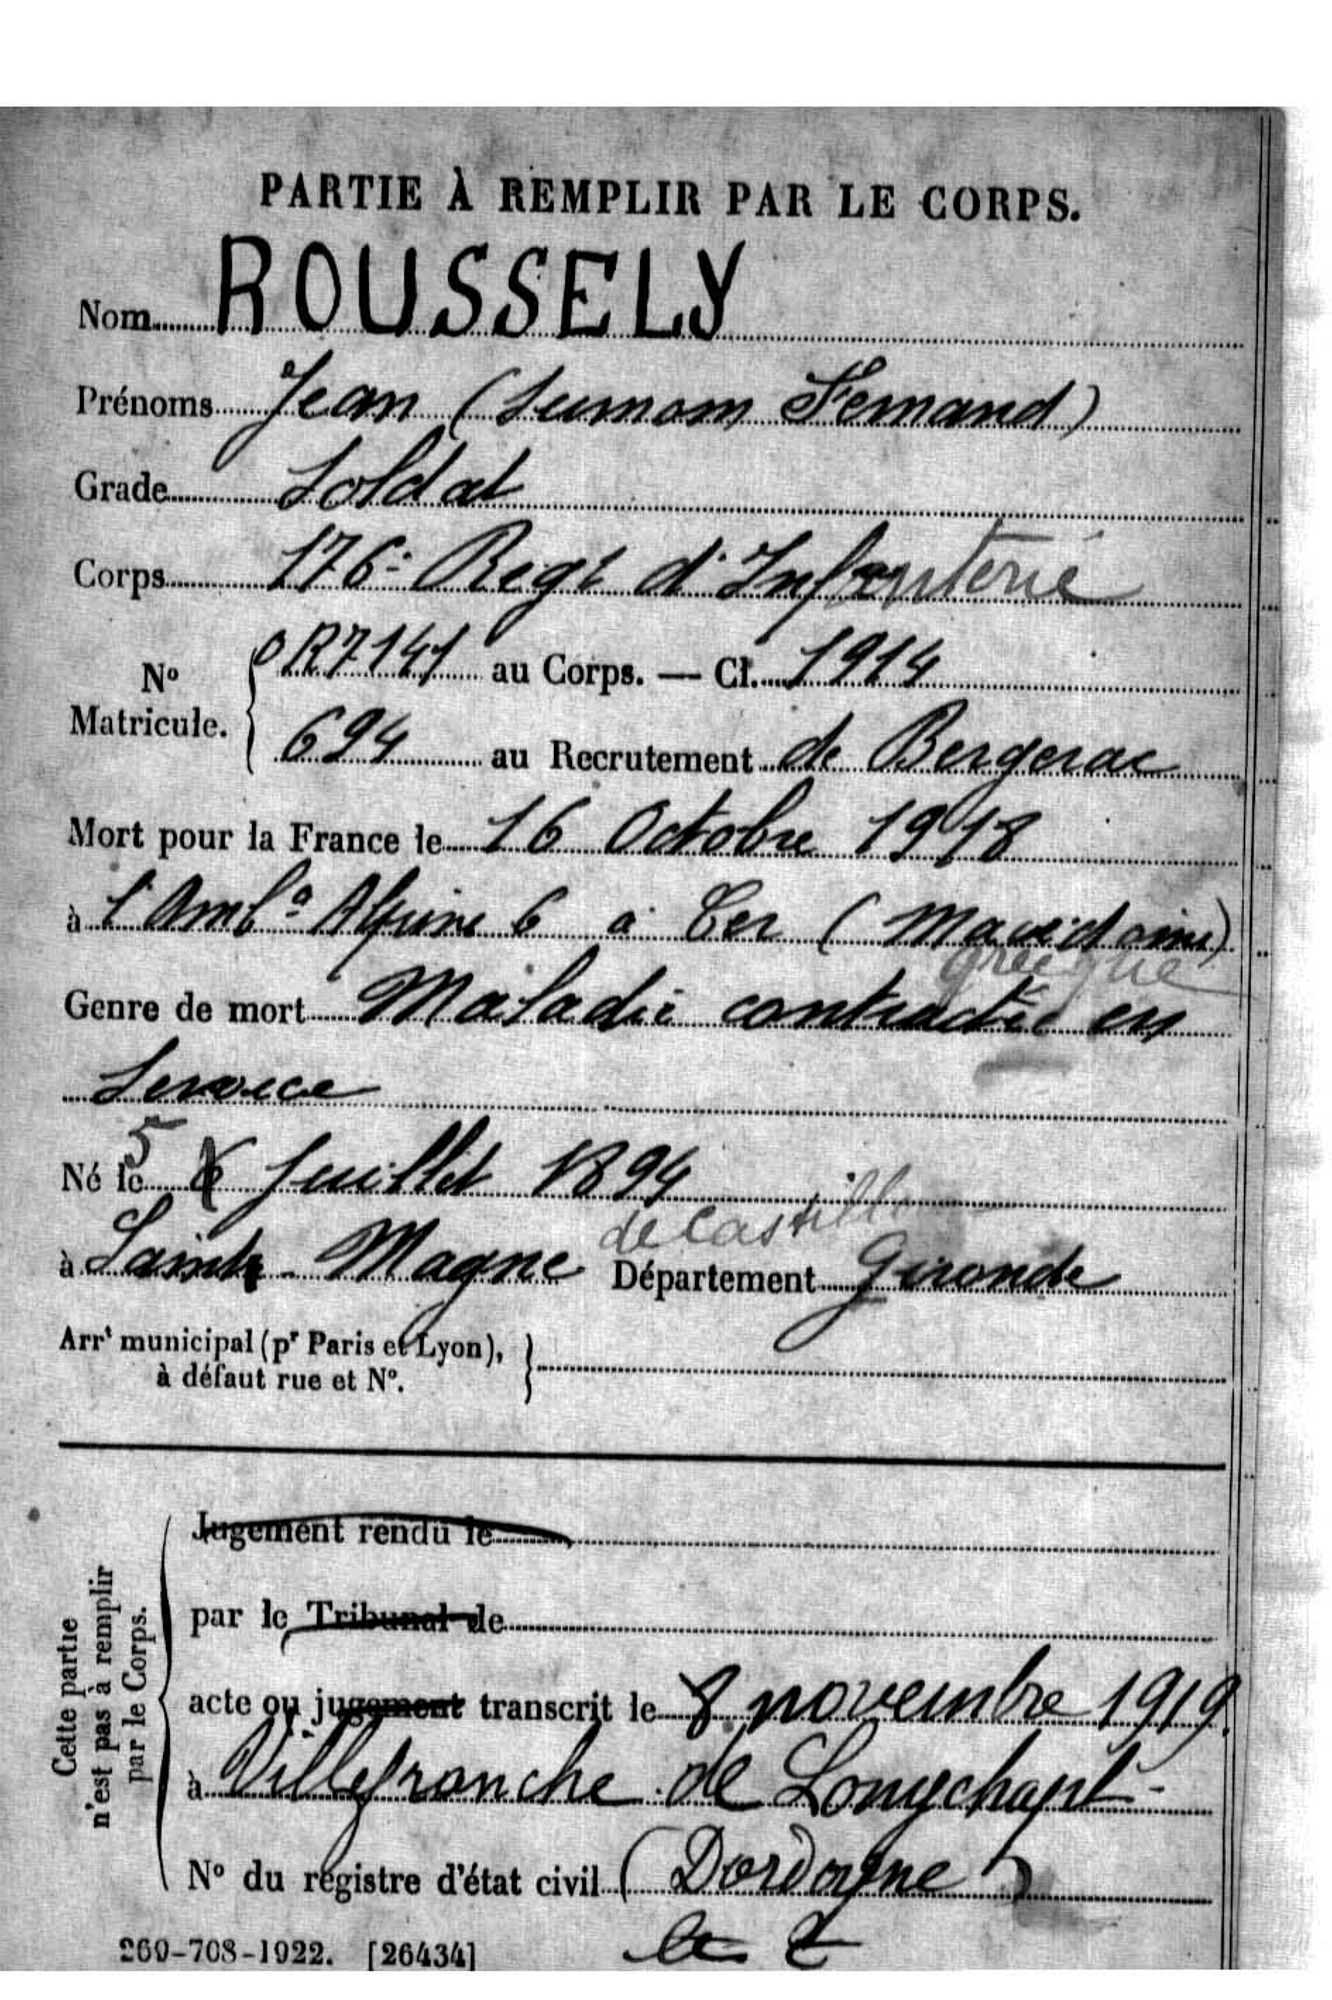 PARTIE À REMPLIR PAR LE CORPS.
Nom ROUSSELY
Prénoms Jean (Surnom Fernand)
Grade Soldat
Corps 176e Regt d'Infanterie
No Matricule. R7141 au Corps. — Cl. 1914
694 au Recrutement de Bergerac
Mort pour la France le 16 Octobre 1918
à l'Ambce Alpine 6 à Cer (Macédoine)
grecque
Genre de mort Maladie contractée en
Service
5
Né le 6 Juillet 1894
de Castillon
à Sainte-Magne Département Gironde
Arrt municipal (pr Paris et Lyon),
à défaut rue et No.
Cette partie
n'est pas à remplir
par le Corps.
Jugement rendu le
par le Tribunal de
acte ou jugement transcrit le 8 novembre 1919.
à Villefranche de Longchapt-
No du registre d'état civil (Dordogne)
260-708-1922. [26434]